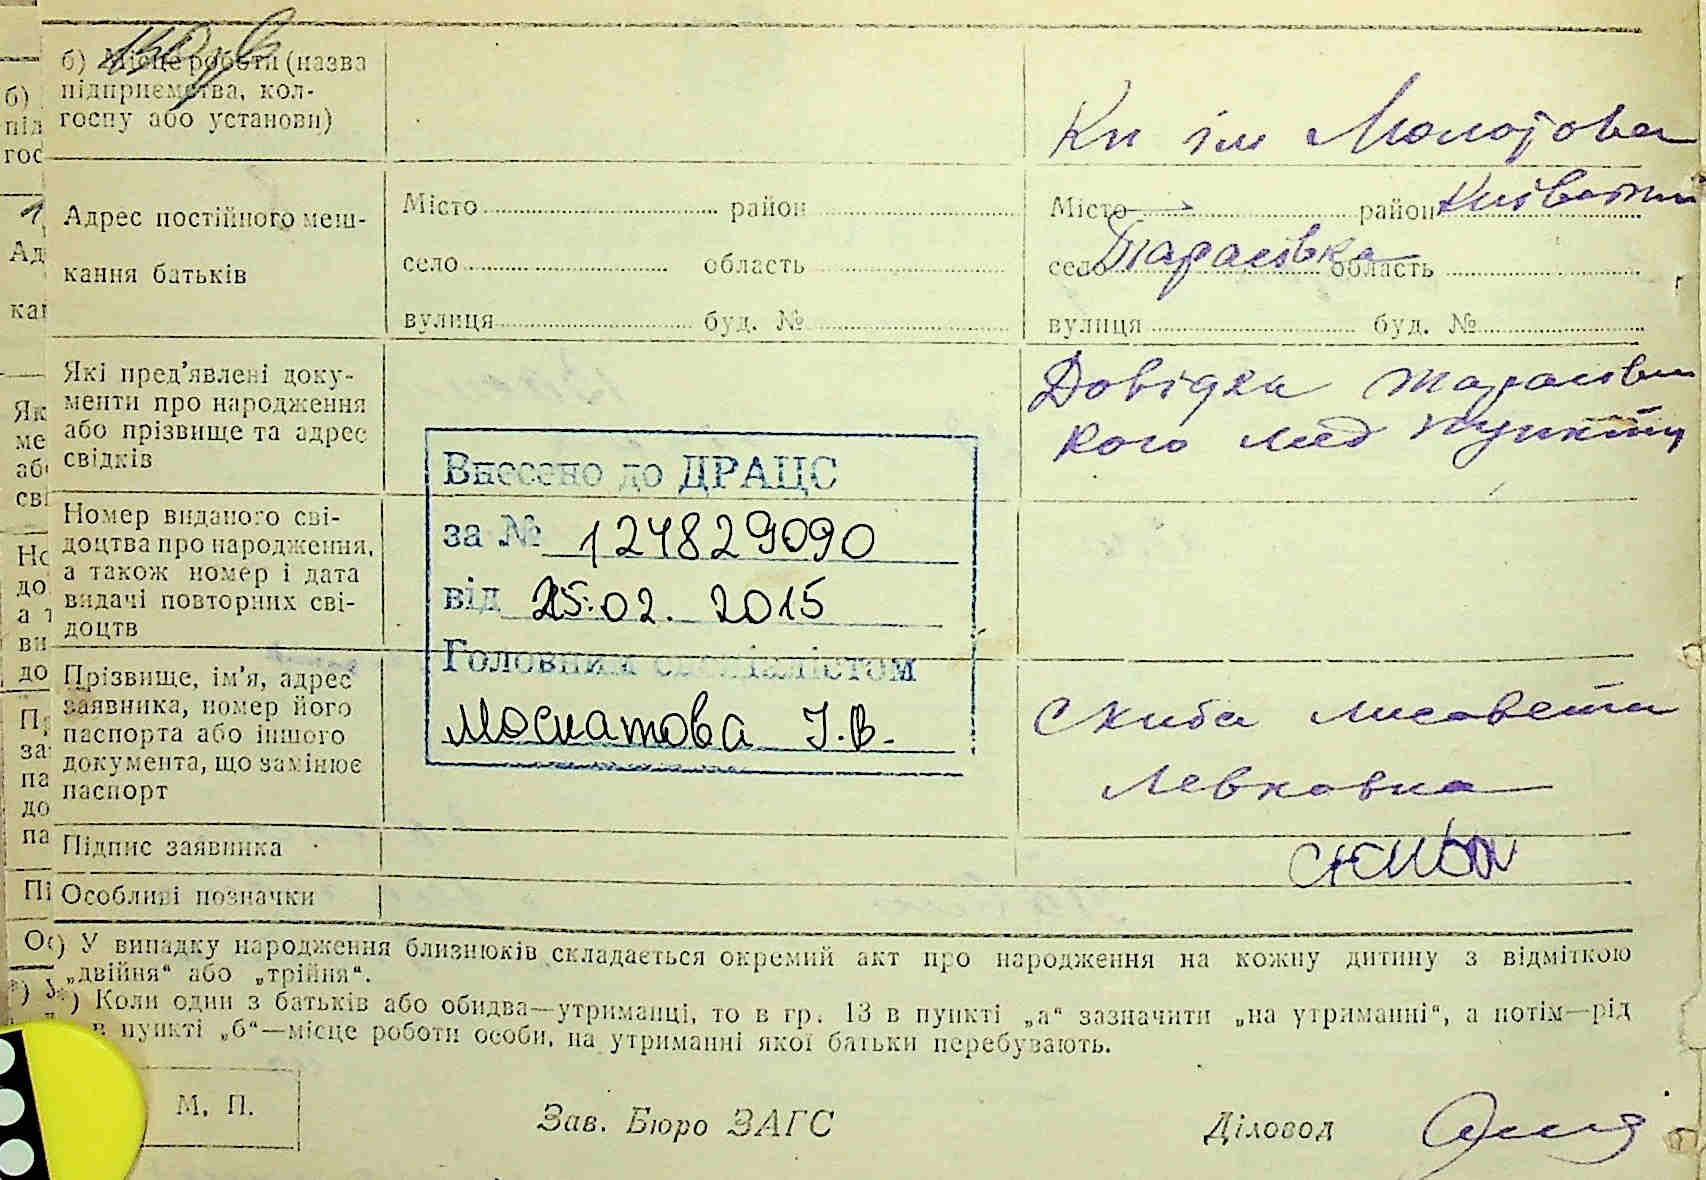 б) Місце роботи (назва
підприємства, кол-
госпу або установи)
Кп ім Молотова
Адрес постійного меш-
кання батьків
Місто район
село область
вулиця буд. №
Місто район Київський
село Тарасівка область
вулиця буд. №
Які пред’явлені доку-
менти про народження
або прізвище та адрес
свідків
Довідка Тарасівсь
кого мед пункту
Номер виданого сві-
доцтва про народження,
а також номер і дата
видачі повторних сві-
доцтв
Внесено до ДРАЦС
за № 124829090
від 25.02. 2015
Головним спеціалістом
Москатова І.В.
Прізвище, ім’я, адрес
заявника, номер його
паспорта або іншого
документа, що замінює
паспорт
Скиба Лисавета
Левковна
Підпис заявника
Скиба
Особливі позначки
) У випадку народження близнюків складається окремий акт про народження на кожну дитину з відміткою
„двійня“ або „трійня“.
) Коли один з батьків або обидва—утриманці, то в гр. 13 в пункті „а“ зазначити „на утриманні“, а потім—рід
в пункті „б“—місце роботи особи, на утриманні якої батьки перебувають.
М. П.
Зав. Бюро ЗАГС
Діловод